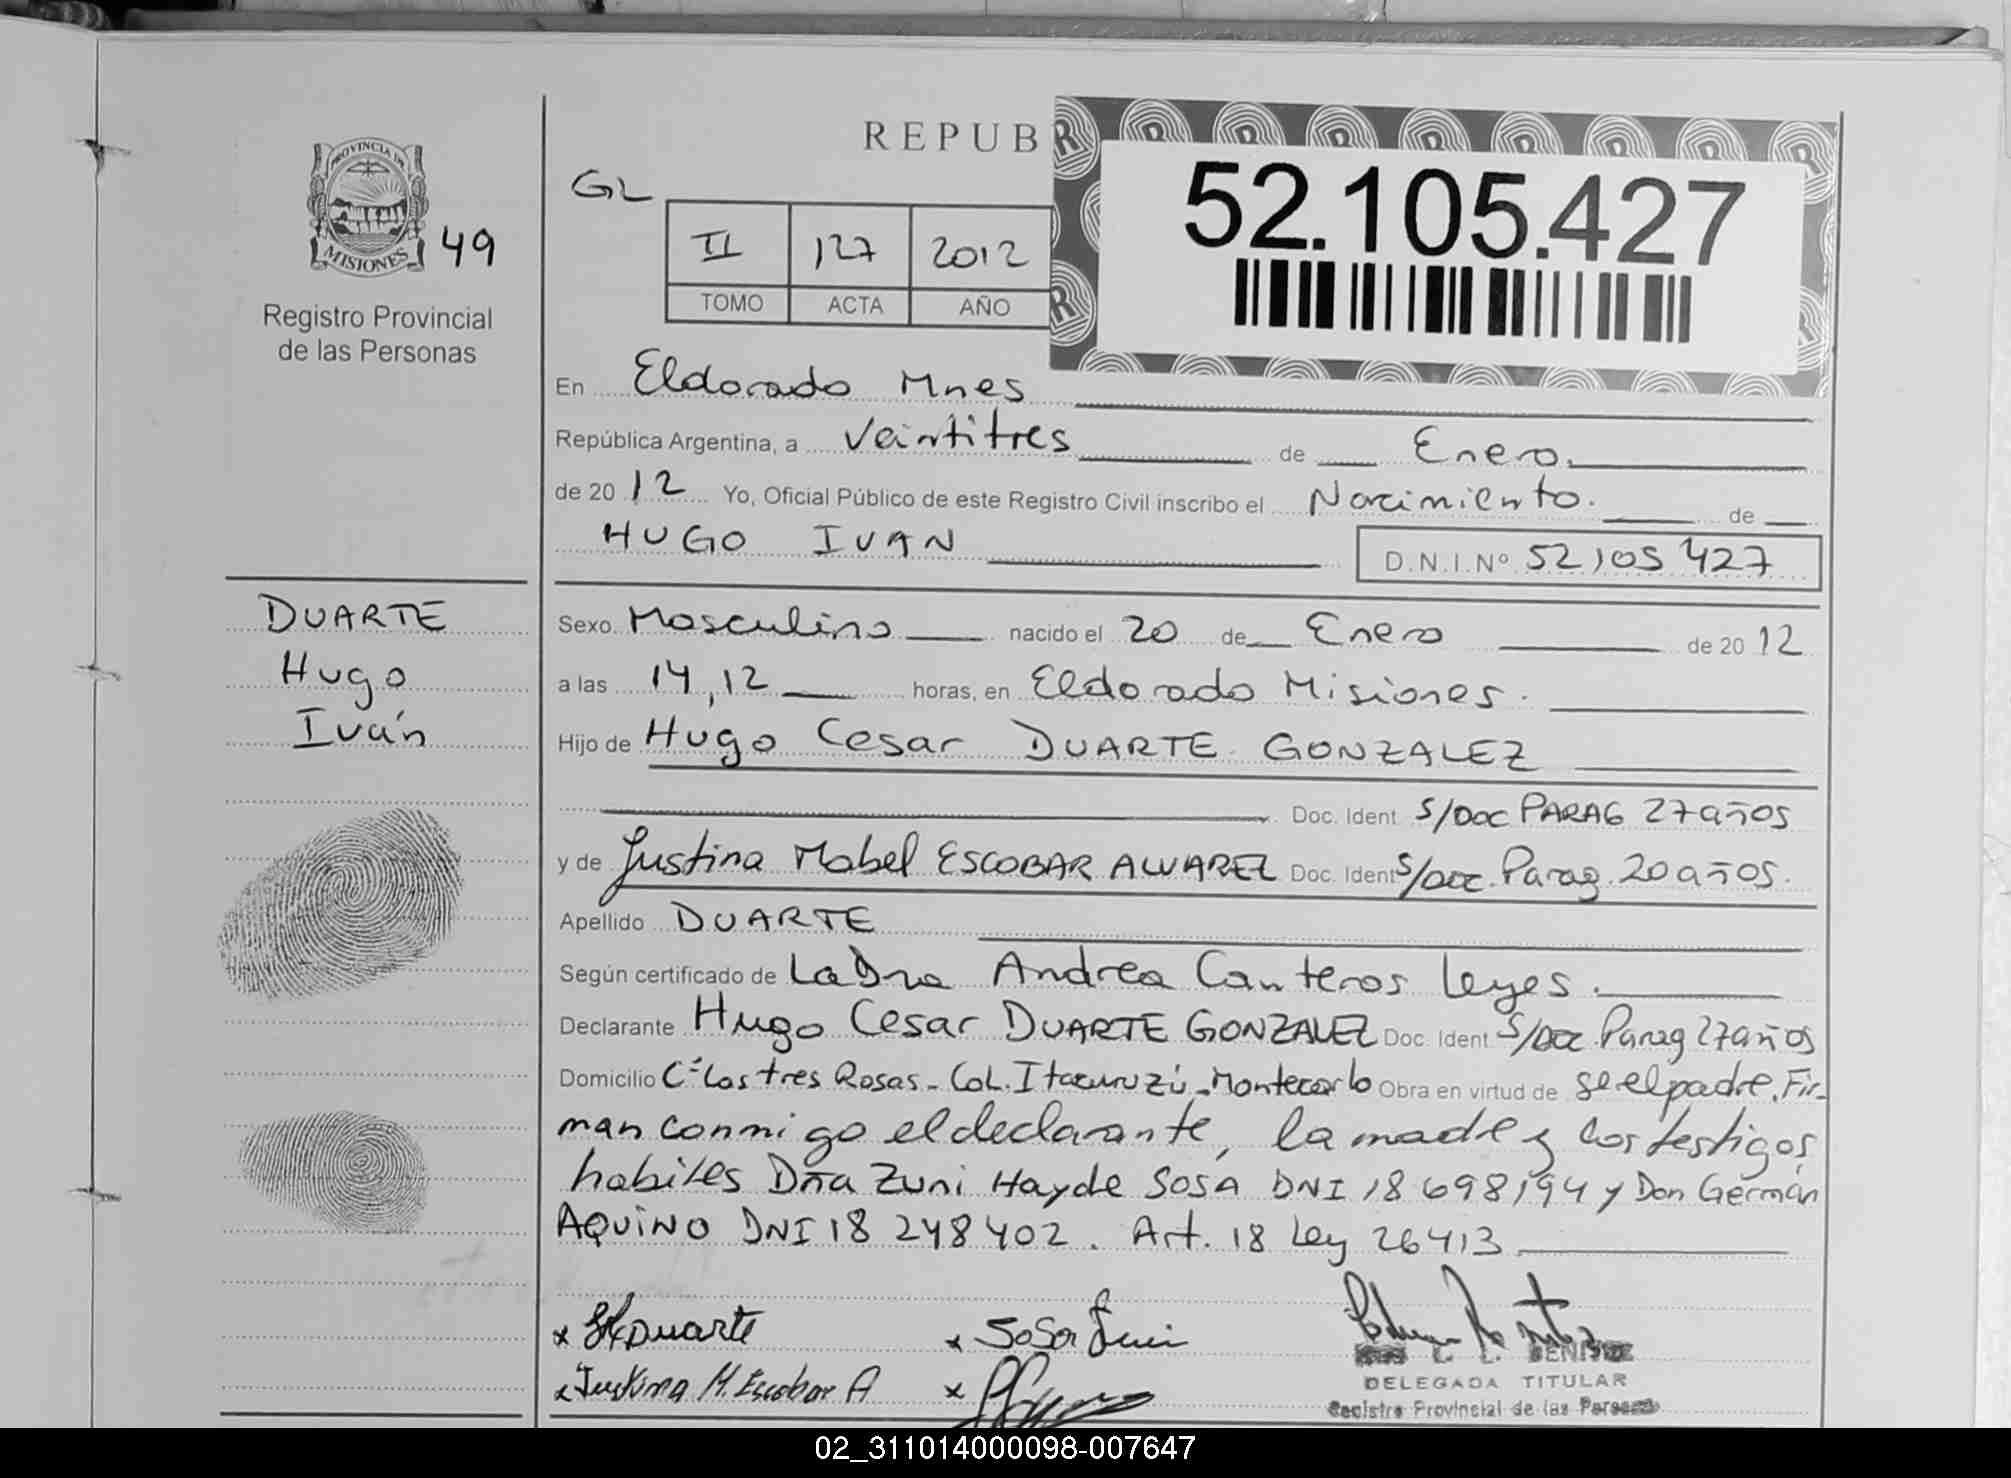 PROVINCIA DE
MISIONES
49
Registro Provincial
de las Personas
DUARTE
Hugo
Iván
REPUB
GL
II 127 2012
TOMO ACTA AÑO
52.105.427
En Eldorado Mnes
República Argentina, a Veintitres de Enero.
de 20 12 Yo, Oficial Público de este Registro Civil inscribo el Nacimiento. de
HUGO IVAN D.N.I.Nº 52105427
Sexo Masculino nacido el 20 de Enero de 20 12
a las 14,12 horas, en Eldorado Misiones.
Hijo de Hugo Cesar DUARTE GONZALEZ
Doc. Ident S/DOC PARAG 27 años
y de Justina Mabel ESCOBAR ALVAREZ Doc. Ident S/Doc. Parag. 20 años.
Apellido DUARTE
Según certificado de La Dra Andrea Canteros Leyes.
Declarante Hugo Cesar DUARTE GONZALEZ Doc. Ident S/Doc Parag 27 años
Domicilio Cº Las tres Rosas - Col. Itacuruzú - Montecarlo Obra en virtud de se el padre. Fir-
man conmigo el declarante, la madre y los testigos
habiles Dña Zuni Hayde SOSA DNI 18 698194 y Don Germán
AQUINO DNI 18 248 402. Art. 18 Ley 26413
x Duarte x Sosa Zuni
x Justina M. Escobar A x
BENITEZ
DELEGADA TITULAR
Registro Provincial de las Personas
02_311014000098-007647